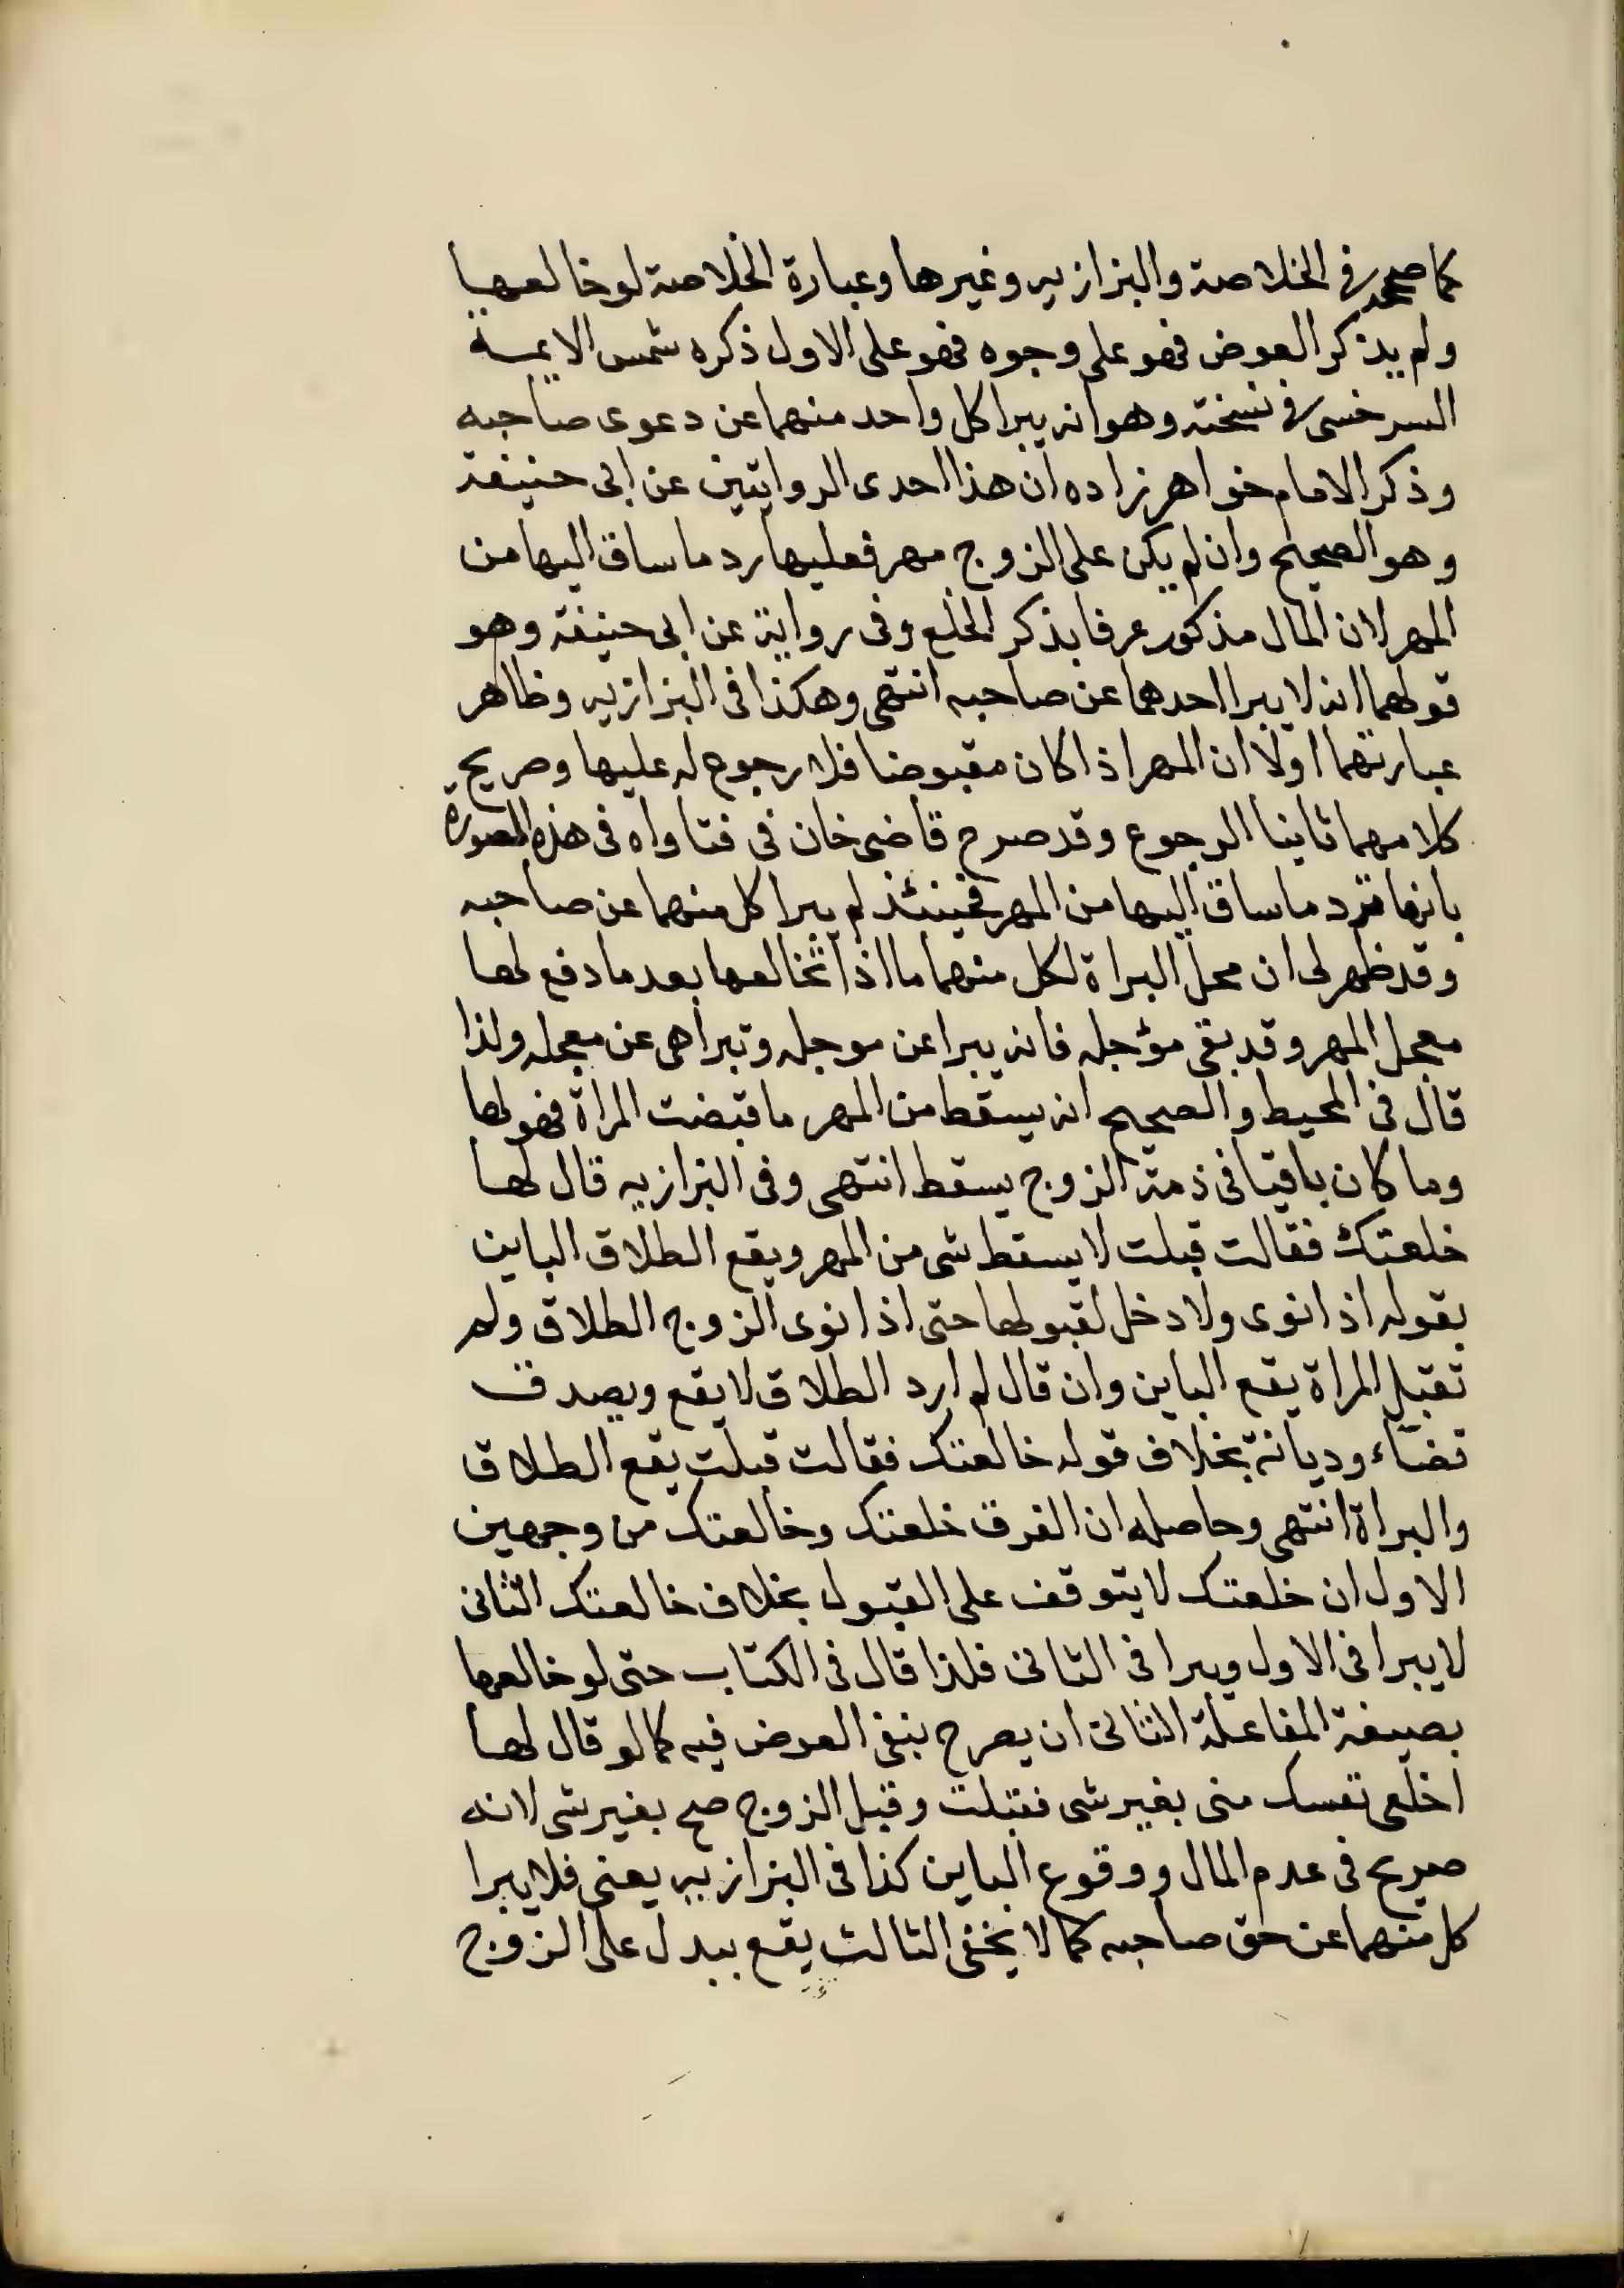 كما صححه فى الخلاصة والبزازيه وغيرها وعبارة الخلاصة لو خالعها
ولم يذكر العوض فهو على وجوه فهو على الاول ذكره شمس الايمة
السرخسى فى نسخته وهو انه يبرا كل واحد منهما عن دعوى صاحبه
وذكر الامام خواهر زاده ان هذا احدى الروايتين عن ابى حنيفة
وهو الصحيح وان لم يكن على الزوج مهر فعليها رد ما ساق اليها من
المهر لان المال مذكور عرفا بذكر الخلع وفى رواية عن ابى حنيفة وهو
قولهما انه لا يبرا احدهما عن صاحبه انتهى وهكذا فى البزازيه وظاهر
عبارتهما اولا ان المهر اذا كان مقبوضا فلا رجوع له عليها وصريح
كلامهما ثانيا الرجوع وقد صرح قاضى خان فى فتاواه فى هذه الصورة
بانها ترد ما ساق اليها من المهر فحينئذ لم يبرا كل منهما عن صاحبه
وقد ظهر لى ان محل البراة لكل منهما ما اذا تخالعها بعد ما دفع لها
معجل المهر وقد بقى مؤجله فانه يبرا عن موجله وتبرا هى عن معجله ولذا
قال فى المحيط والصحيح انه يسقط من المهر ما قبضت المراة فهو لها
وما كان باقيا فى ذمة الزوج يسقط انتهى وفى البزازيه قال لها
خلعتك فقالت قبلت لا يسقط شى من المهر ويقع الطلاق الباين
بقوله اذا نوى ولا دخل لقبولها حتى اذا نوى الزوج الطلاق ولم
تقبل المراة يقع الباين وان قال لم ارد الطلاق لا يقع ويصدق
قضاء وديانة بخلاف قوله خالعتك فقالت قبلت يقع الطلاق
والبراة انتهى وحاصله ان الفرق خلعتك وخالعتك من وجهين
الاول ان خلعتك لا يتوقف على القبول بخلاف خالعتك الثانى
لا يبرا فى الاول ويبرا فى الثانى فلذا قال فى الكتاب حتى لو خالعها
بصيغة المفاعلة الثانى ان يصرح بنفى العوض فيه كما لو قال لها
اخلعى نفسك منى بغير شى فقبلت وقبل الزوج صح بغير شى لانه
صريح فى عدم المال ووقوع الباين كذا فى البزازيه يعنى فلا يبرا
كل منهما عن حق صاحبه كما لا يخفى الثالث يقع ببدل على الزوج